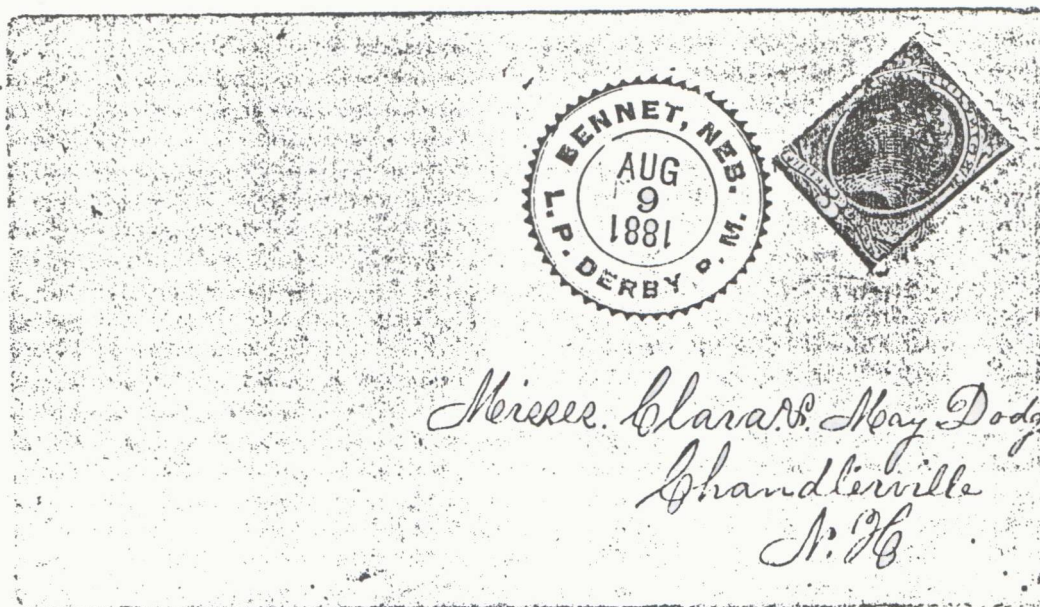 BENNET, NEB.
AUG
9
1881
L. P. DERBY P. M.
3
Misses. Clara & May Dodg
Chandlerville
N. H